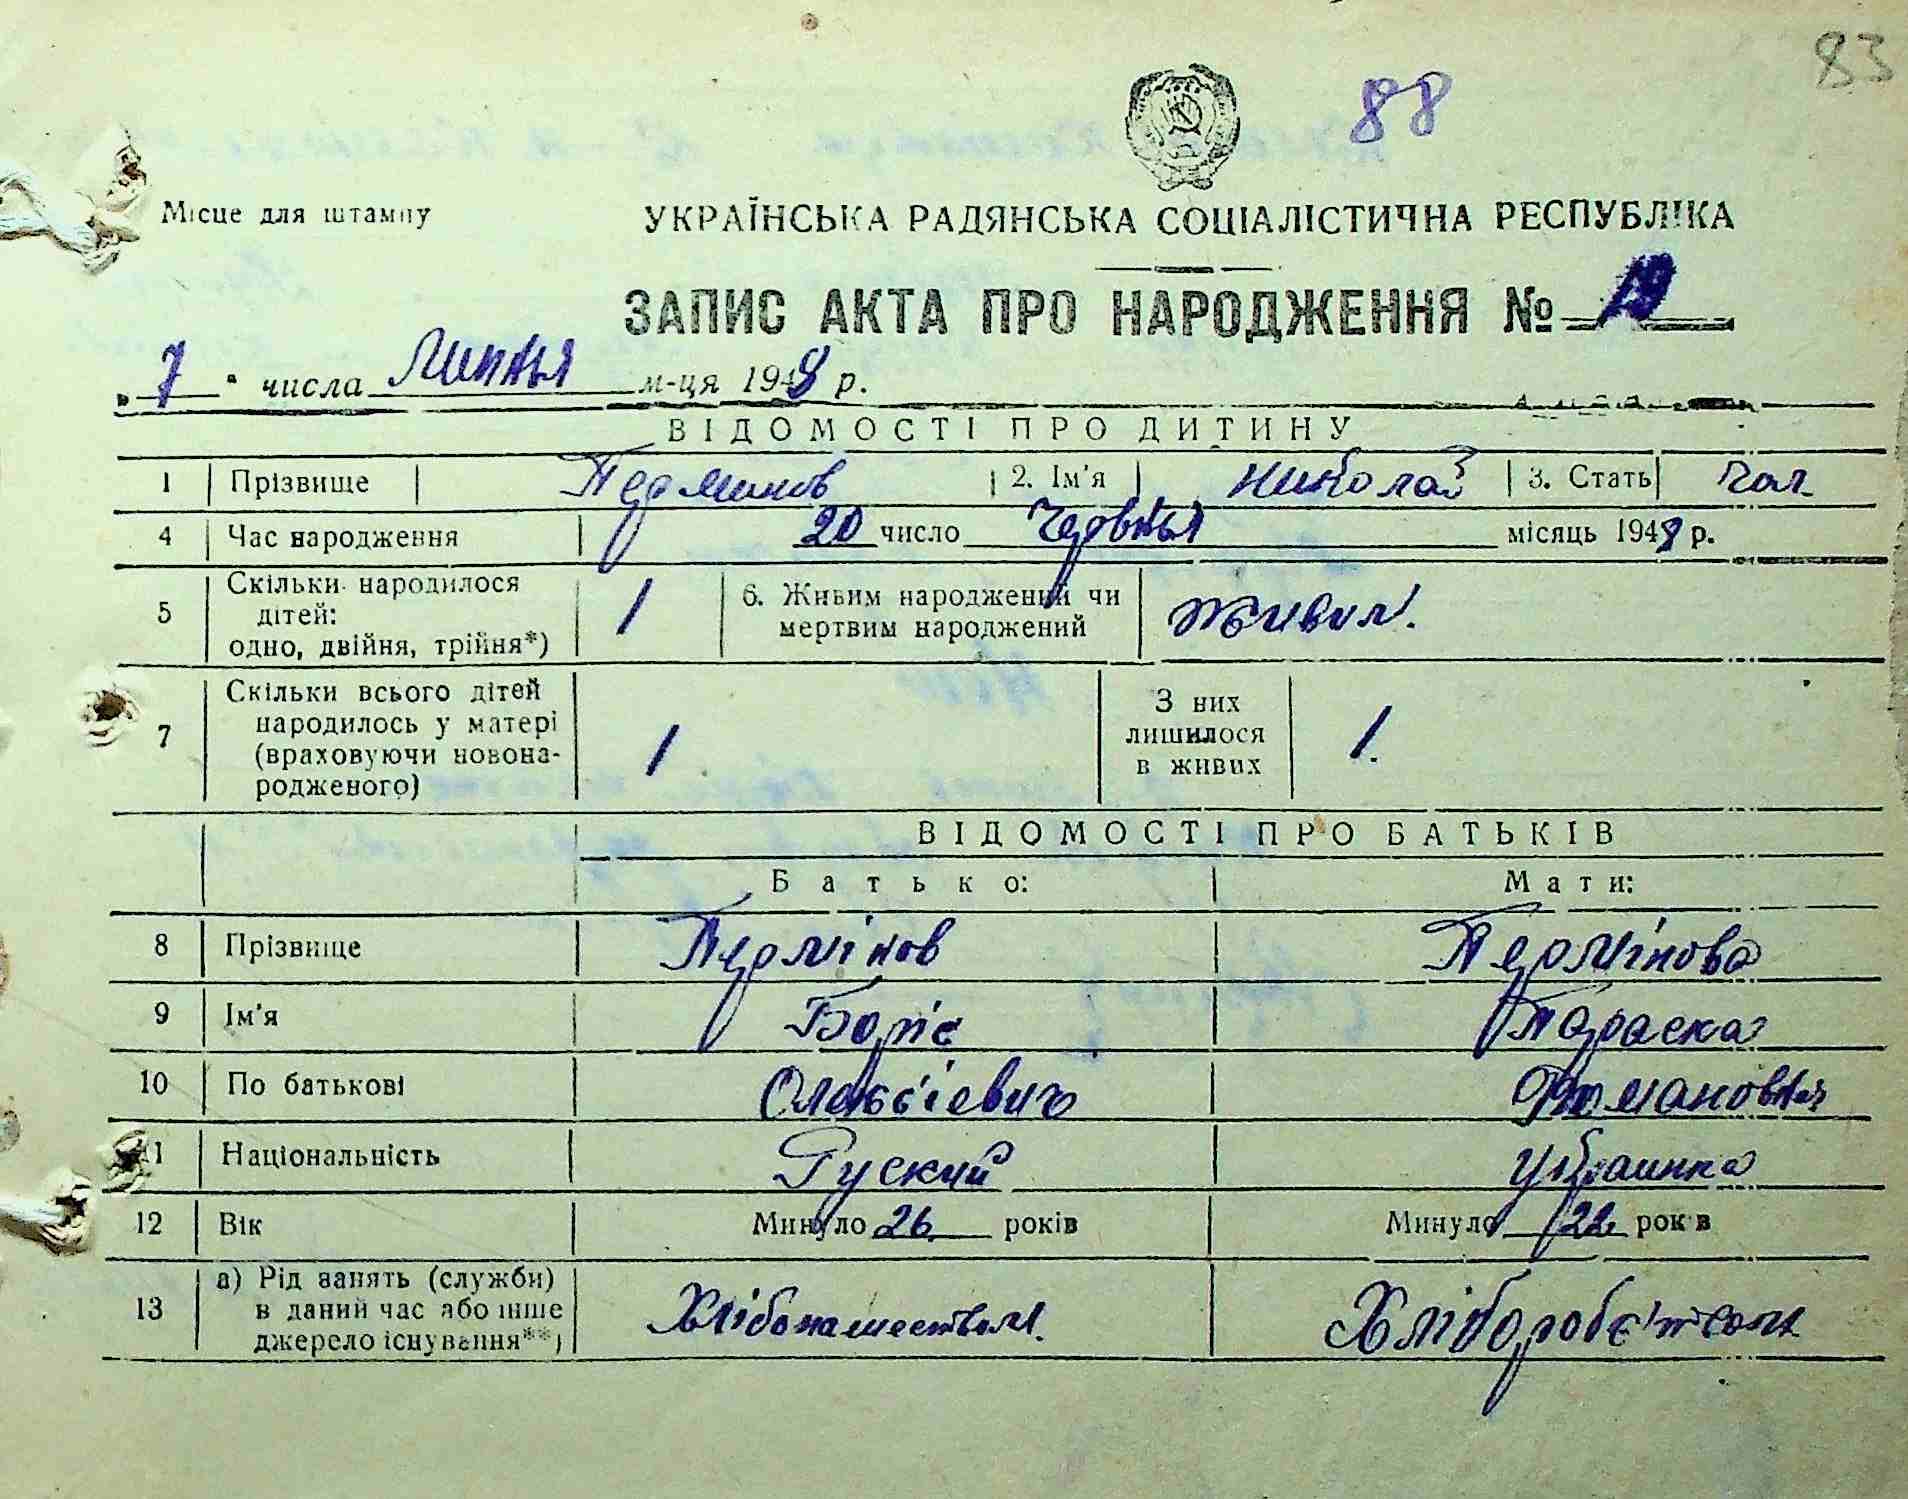 83
88
Місце для штампу
УКРАЇНСЬКА РАДЯНСЬКА СОЦІАЛІСТИЧНА РЕСПУБЛІКА
ЗАПИС АКТА ПРО НАРОДЖЕННЯ № 19
„7“ числа Липня м-ця 1949 р.
ВІДОМОСТІ ПРО ДИТИНУ
1 Прізвище Перминов 2. Ім'я Николай 3. Стать Чол
4 Час народження 20 число Червня місяць 1949 р.
5 Скільки народилося дітей: одно, двійня, трійня*) 1 6. Живим народжений чи мертвим народжений Живим.
7 Скільки всього дітей народилось у матері (враховуючи новонародженого) 1 З них лишилося в живих 1.
ВІДОМОСТІ ПРО БАТЬКІВ
Батько: Мати:
8 Прізвище Пермінов Пермінова
9 Ім'я Боріс Параска
10 По батькові Олексієвич Романовня
11 Національність Руский Украинка
12 Вік Минуло 26 років Минуло 22 років
13 а) Рід занять (служби) в даний час або інше джерело існування**) Хлібопашеством. Хліборобє'тсом